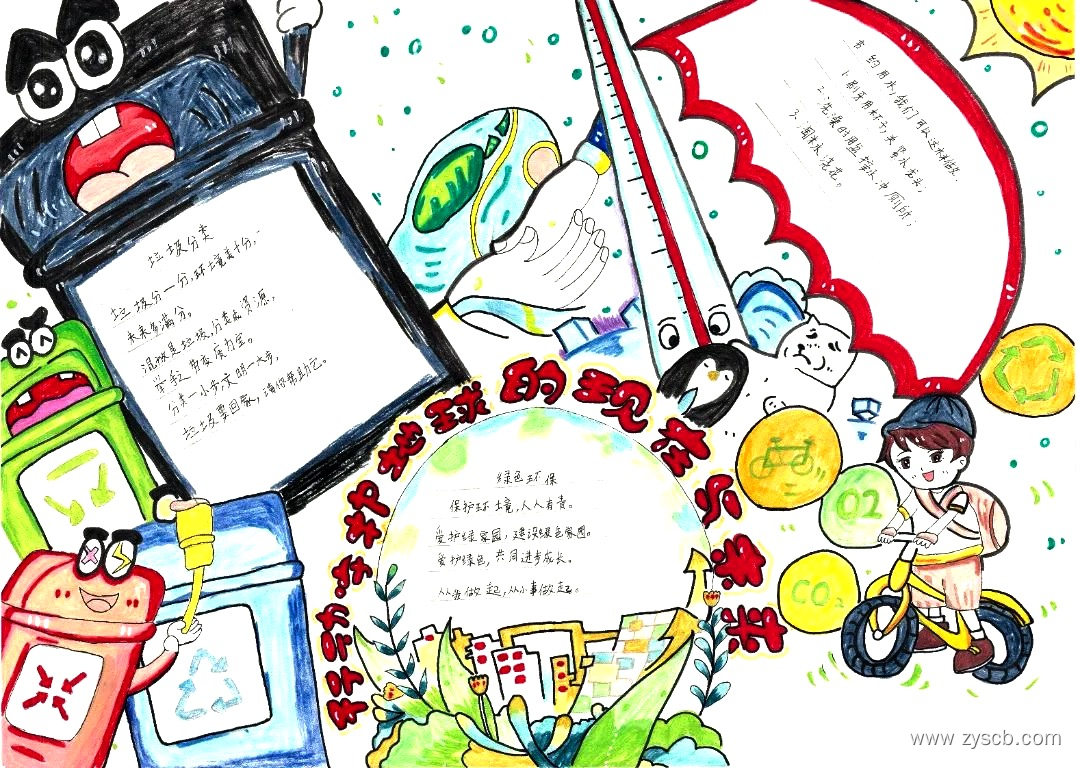 垃圾分类
垃圾分一分,环境美十分,
未来多满分。
混放是垃圾,分类成资源,
举手之劳变废为宝。
分类一小步,文明一大步,
垃圾要回家,请你帮助它。
节约用水,我们可以这样做,
1.刷牙用杯子,关紧水龙头,
2.洗澡时用盆接水,冲厕所,
3.淘米水,浇花。
环保的现在与未来
绿色环保
保护环境,人人有责。
爱护绿家园,建设绿色家园。
爱护绿色,共同进步成长。
从我做起,从小事做起。
O2
CO2
www.zyscb.com